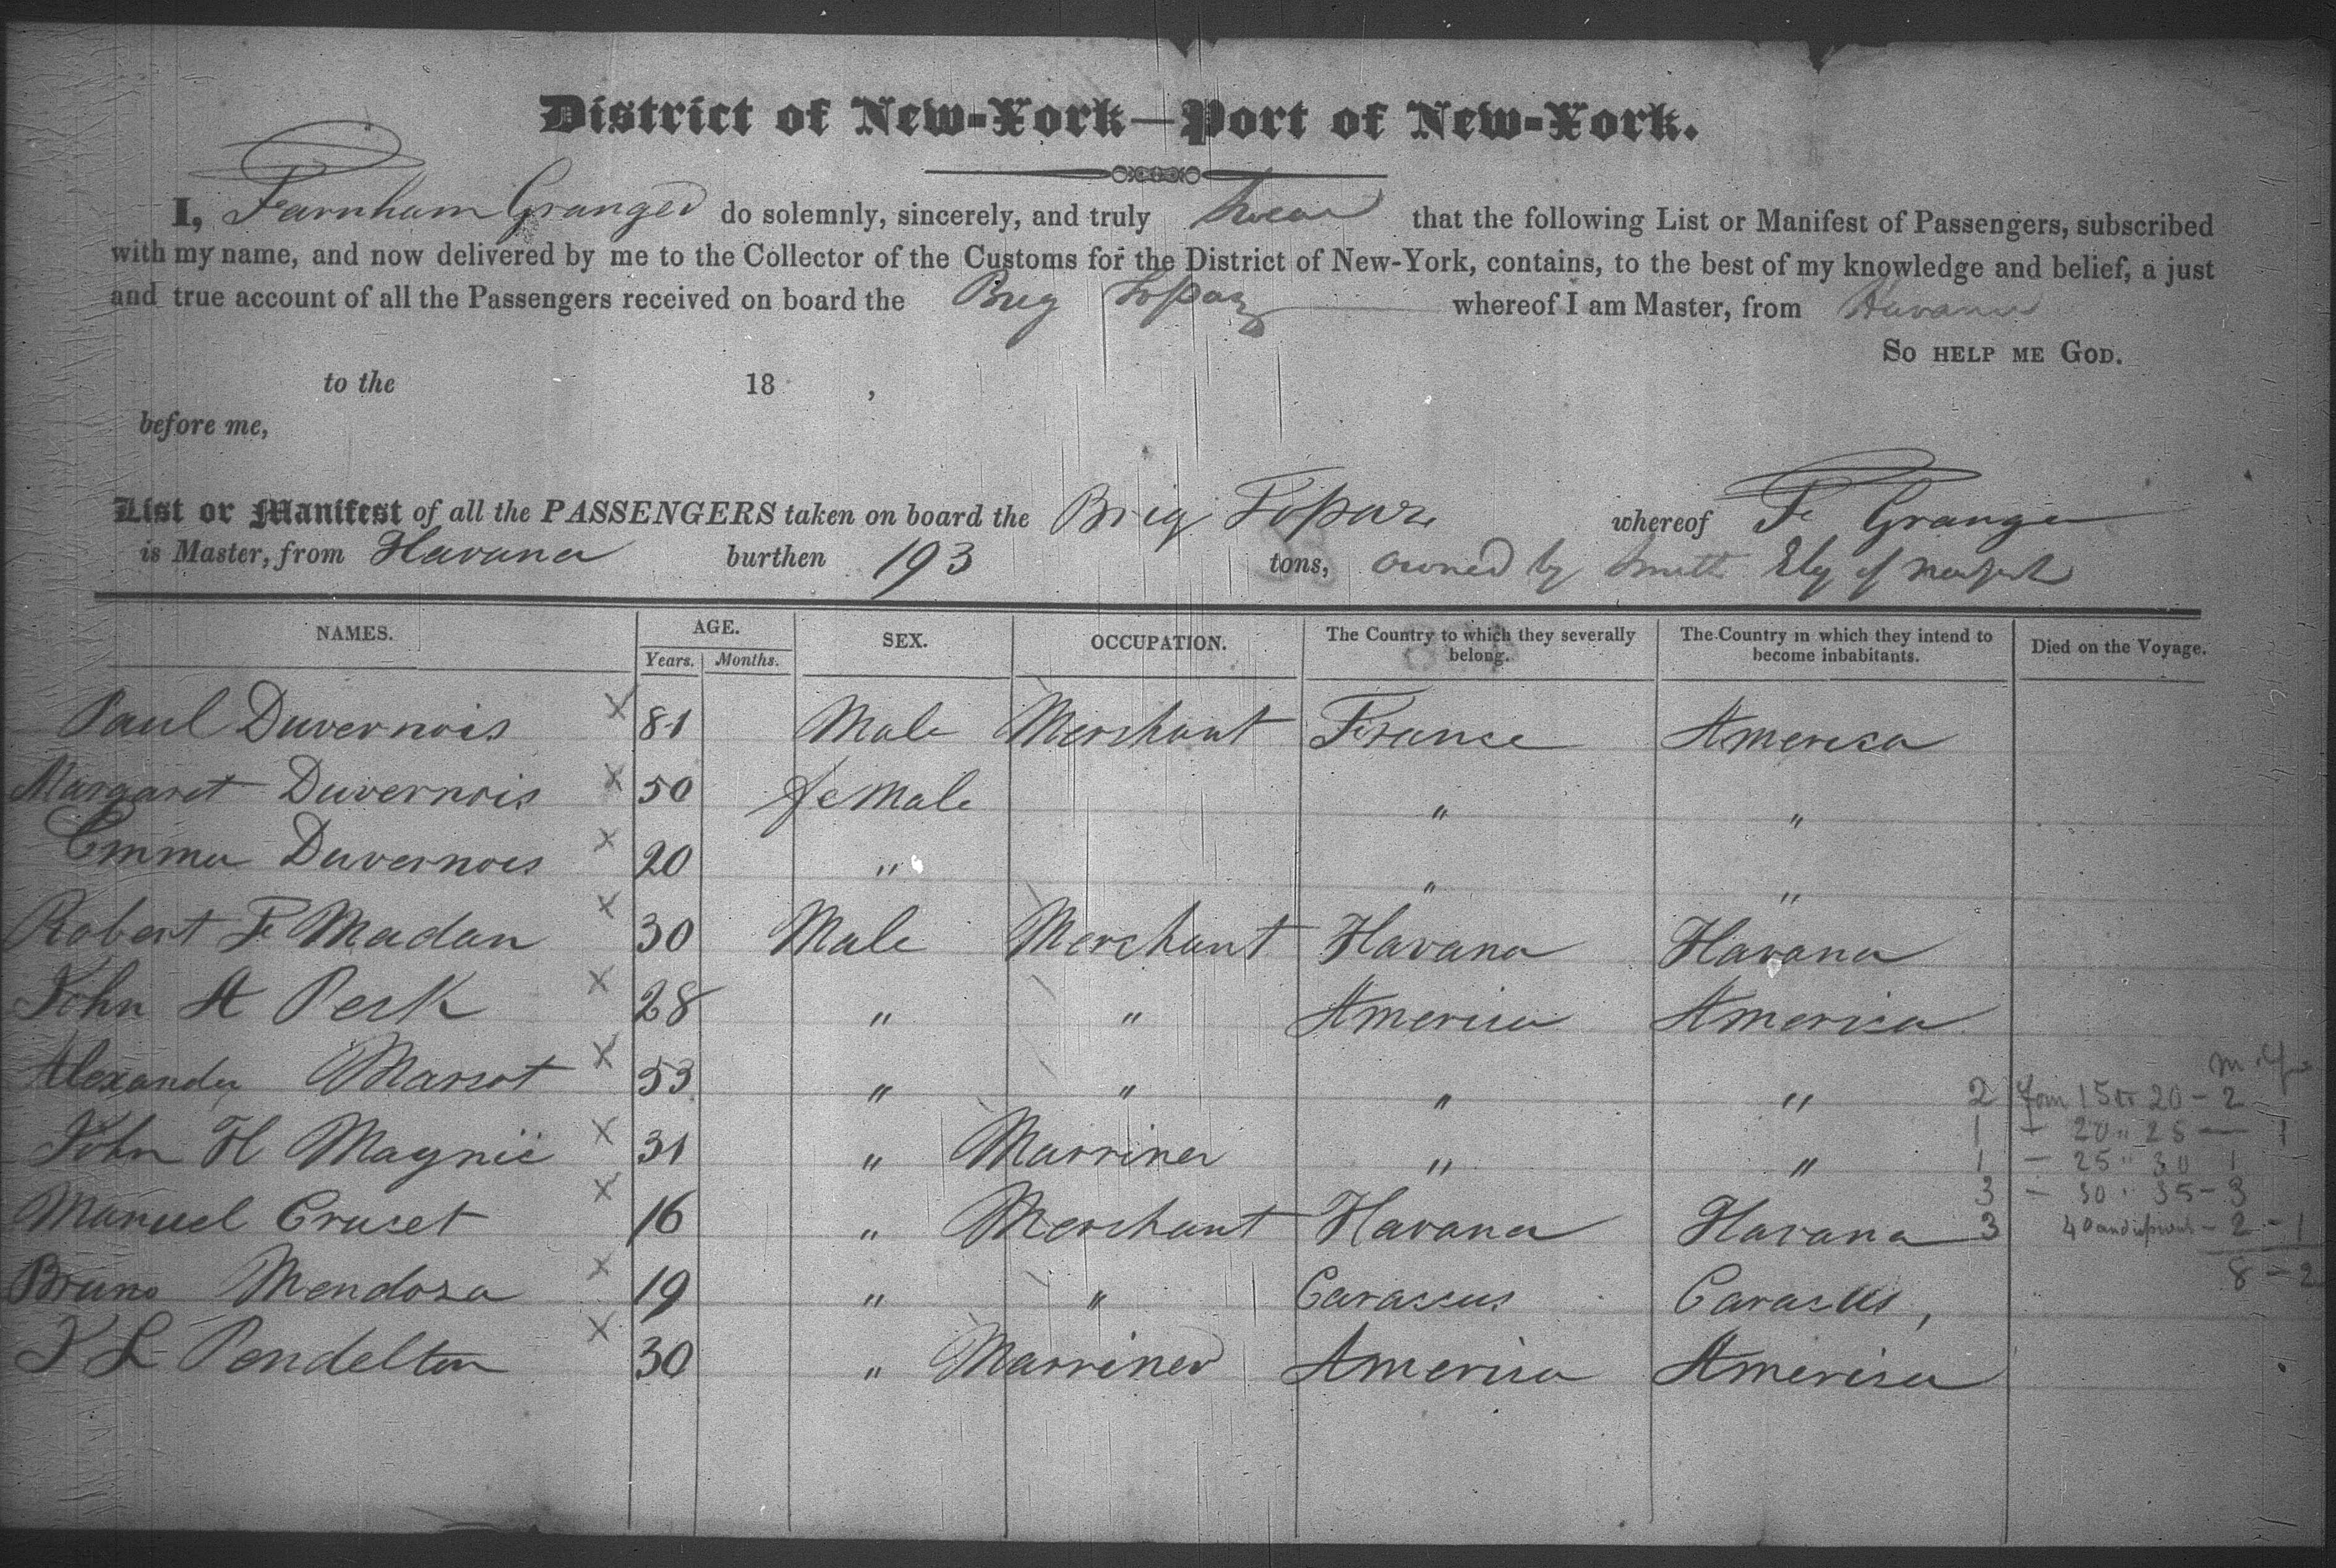 District of New-York—Port of New-York.
I, Farnham Granger do solemnly, sincerely, and truly swear that the following List or Manifest of Passengers, subscribed
with my name, and now delivered by me to the Collector of the Customs for the District of New-York, contains, to the best of my knowledge and belief, a just
and true account of all the Passengers received on board the Brig Topaz whereof I am Master, from Havana
So help me God.
to the 18 ,
before me,
List or Manifest of all the PASSENGERS taken on board the Brig Topaz whereof F Granger
is Master, from Havana burthen 193 tons, owned by Ely of
NAMES. AGE. SEX. OCCUPATION. The Country to which they severally belong. The Country in which they intend to become inhabitants. Died on the Voyage.
Years. Months.
Paul Duvernois X 81 Male Merchant France America
Margaret Duvernois X 50 feMale " "
Emma Duvernois X 20 " " "
Robert F Madan X 30 Male Merchant Havana Havana
John A Peck X 28 " " America America
Alexander Marsot X 53 " " " "
John H Magnie X 31 " Marriner " "
Manuel Cruset X 16 " Merchant Havana Havana
Bruno Mendoza X 19 " " Carassus Carascus,
J L Pendelton X 30 " Marriner America America
2 from 15 to 20 - 2
1 - 20 " 25 — 1
1 - 25 " 30 1
3 - 30 " 35 - 3
3 40 and upward - 2 - 1
8 - 2